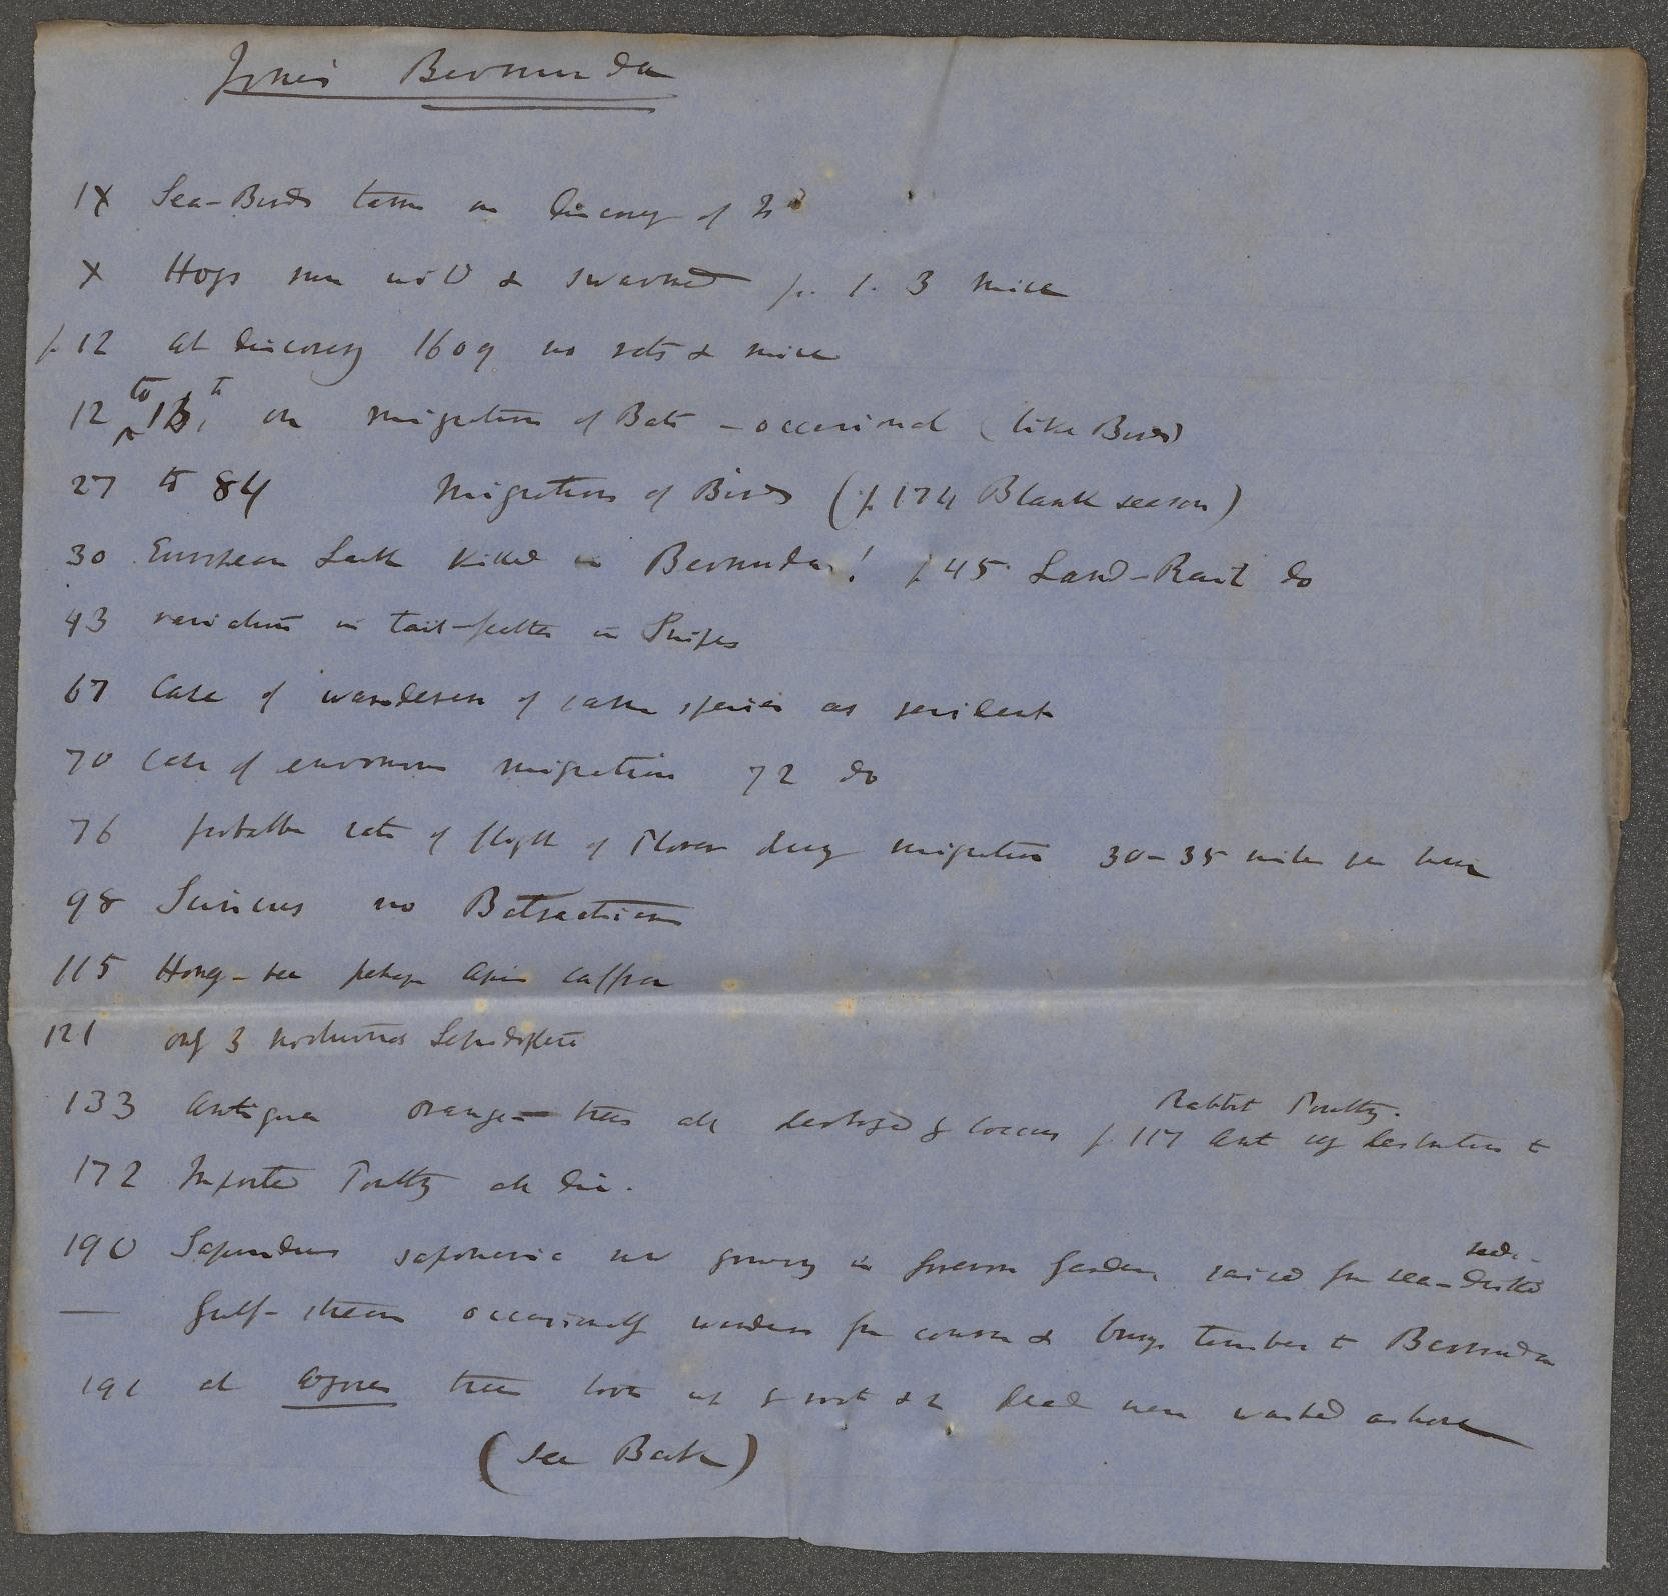 Jones Bermuda
IX Sea-Birds tame on discovery of Isd
X Hogs run wild & swarmed p. 1. 3 mice
p. 12 at discovery 1609 no rats & mice
12 to 13, on migration of Bats – occasional (like Birds)
27 to 84 Migration of Birds (p 174 Blank season)
30 European Lark killed in Bermuda! p 45 Land-Rail do
43 variation in tail-feathers in Snipes
67 Case of wanderers of same species as residents
70 Case of enormous migration 72 do
76 probable rate of flight of Plover during migration 30–35 miles per hour
98 Scincus no Batrachians
115 Honey-bee perhaps Apis caffra
121 only 3 nocturnal Lepidoptera
133 Antigua orange-trees all destroyed by Coccus p. 117 Ant very destructive to Rabbit Poultry.
172 Imported Poultry all die.
190 Sapindus saponaria now growing in Governor Garden, raised from sea-drifted seeds.
— Gulf-stream occasionally wanders from course & brings timber to Bermuda
191 at Azores trees torn up by root & dead were washed ashore
(see Back)